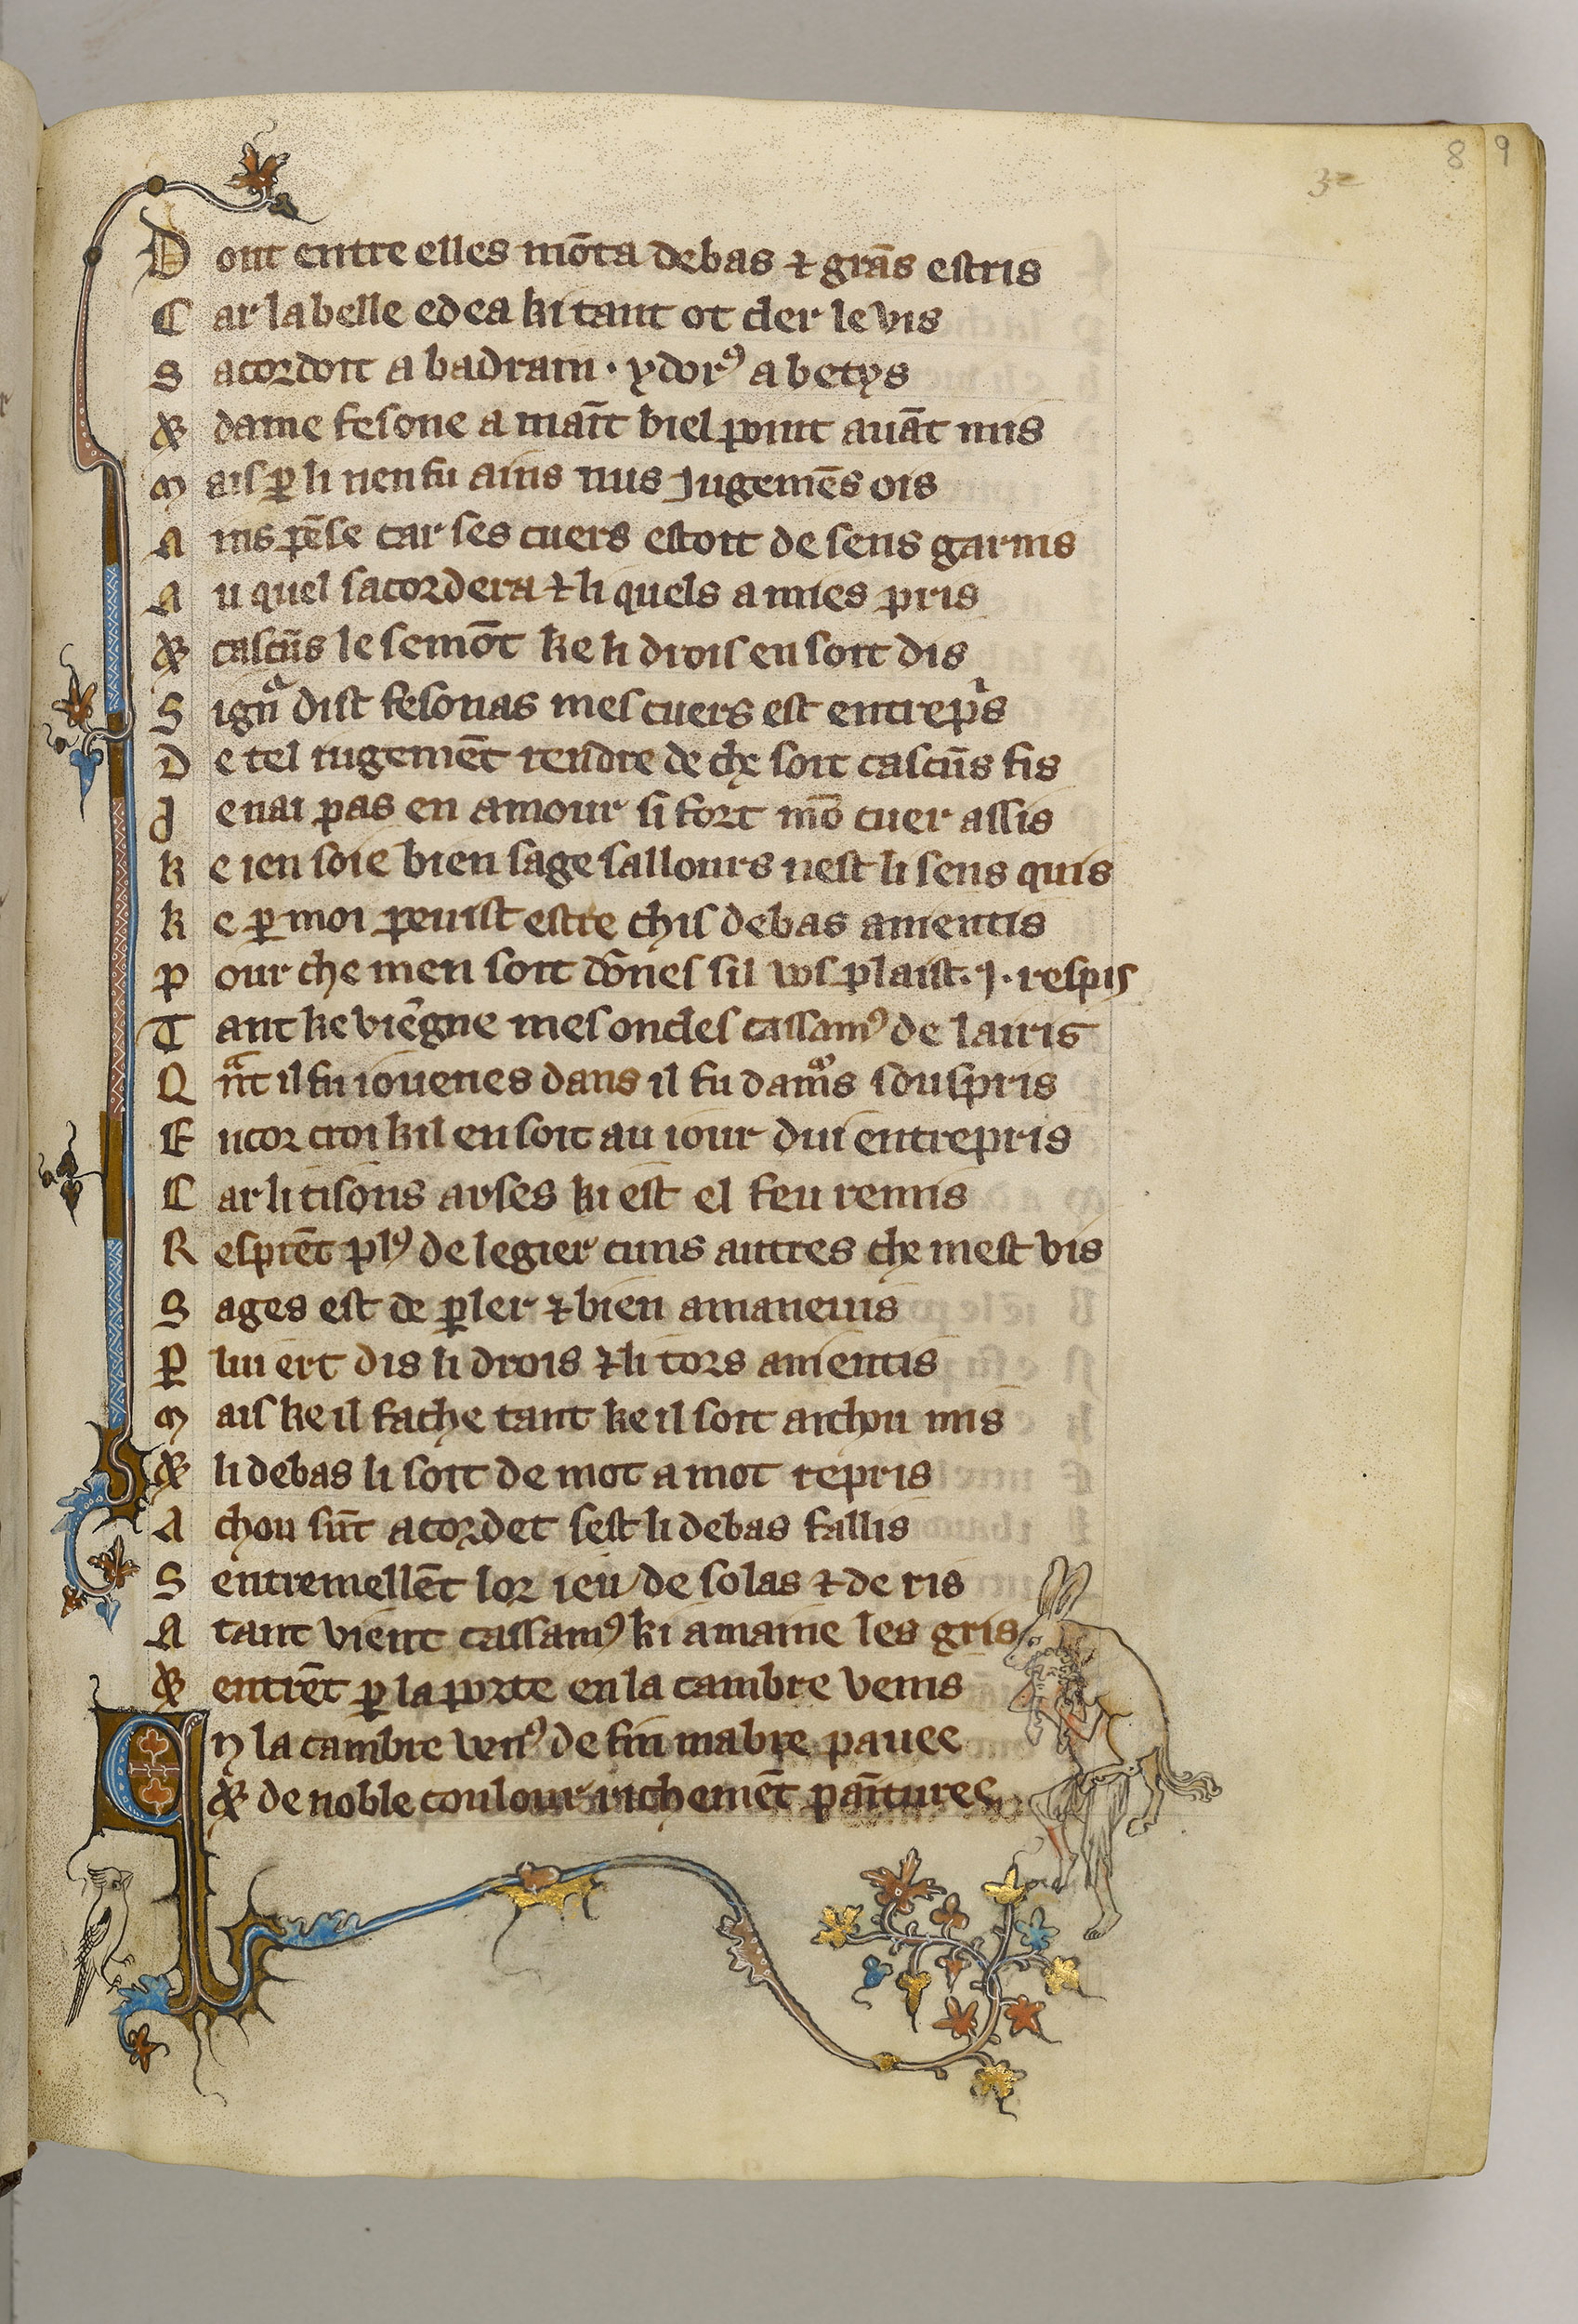 32
8 9
Dont entre elles mōta debas ⁊ grās estris
Car la belle edea ki tant ot cler le vis
Sacordoit a badrain · ydorꝰ a betys
⁊ dame fesone a mart̄ biel point auāt mis
Mais ꝑ li nen fu ains nus Jugemēs ois
Ains pēse car ses cuers estoit de sens garnis
Au quel sacordera ⁊ li quels a mies pris
⁊ cascūs le semōt ke li drois en soit dis
Signͣ dist fesonas mes cuers est entrepͥs
De tel iugemēt rendre de che soit cascūs fis
Je nai pas en amour si fort mō cuer assis
Ke ien soie bien sage sallours nest li sens quis
Ke ꝑ moi peuist estre chis debas amentis
Pour che men soit dōnes sil vos plaist · J · respis
Tant ke viēgne mes oncles cassamꝰ de lairis
Qͣnt il fu iouenes dans il fu damͦs souspris
Encor croi kil en soit au iour dui entrepris
Car li tisons arses ki est el feu remis
Resprēt plꝰ de legier cuns autres che mest vis
Sages est de ꝑler ⁊ bien amaneuis
ꝑ lui ert dis li drois ⁊ li tors amentis
Mais ke il fache tant ke il soit a ichou mis
⁊ li debas li soit de mot a mot repris
A chou sūt acordet sest li debas fallis
Sentremellēt lor ieu de solas ⁊ de ris
Atant vient cassamꝰ ki amaine les gris
⁊ entrēt ꝑ la porte en la cambre venis
En la cambre venꝰ de fin mabre pauee
⁊ de noble coulour richemēt paīturee